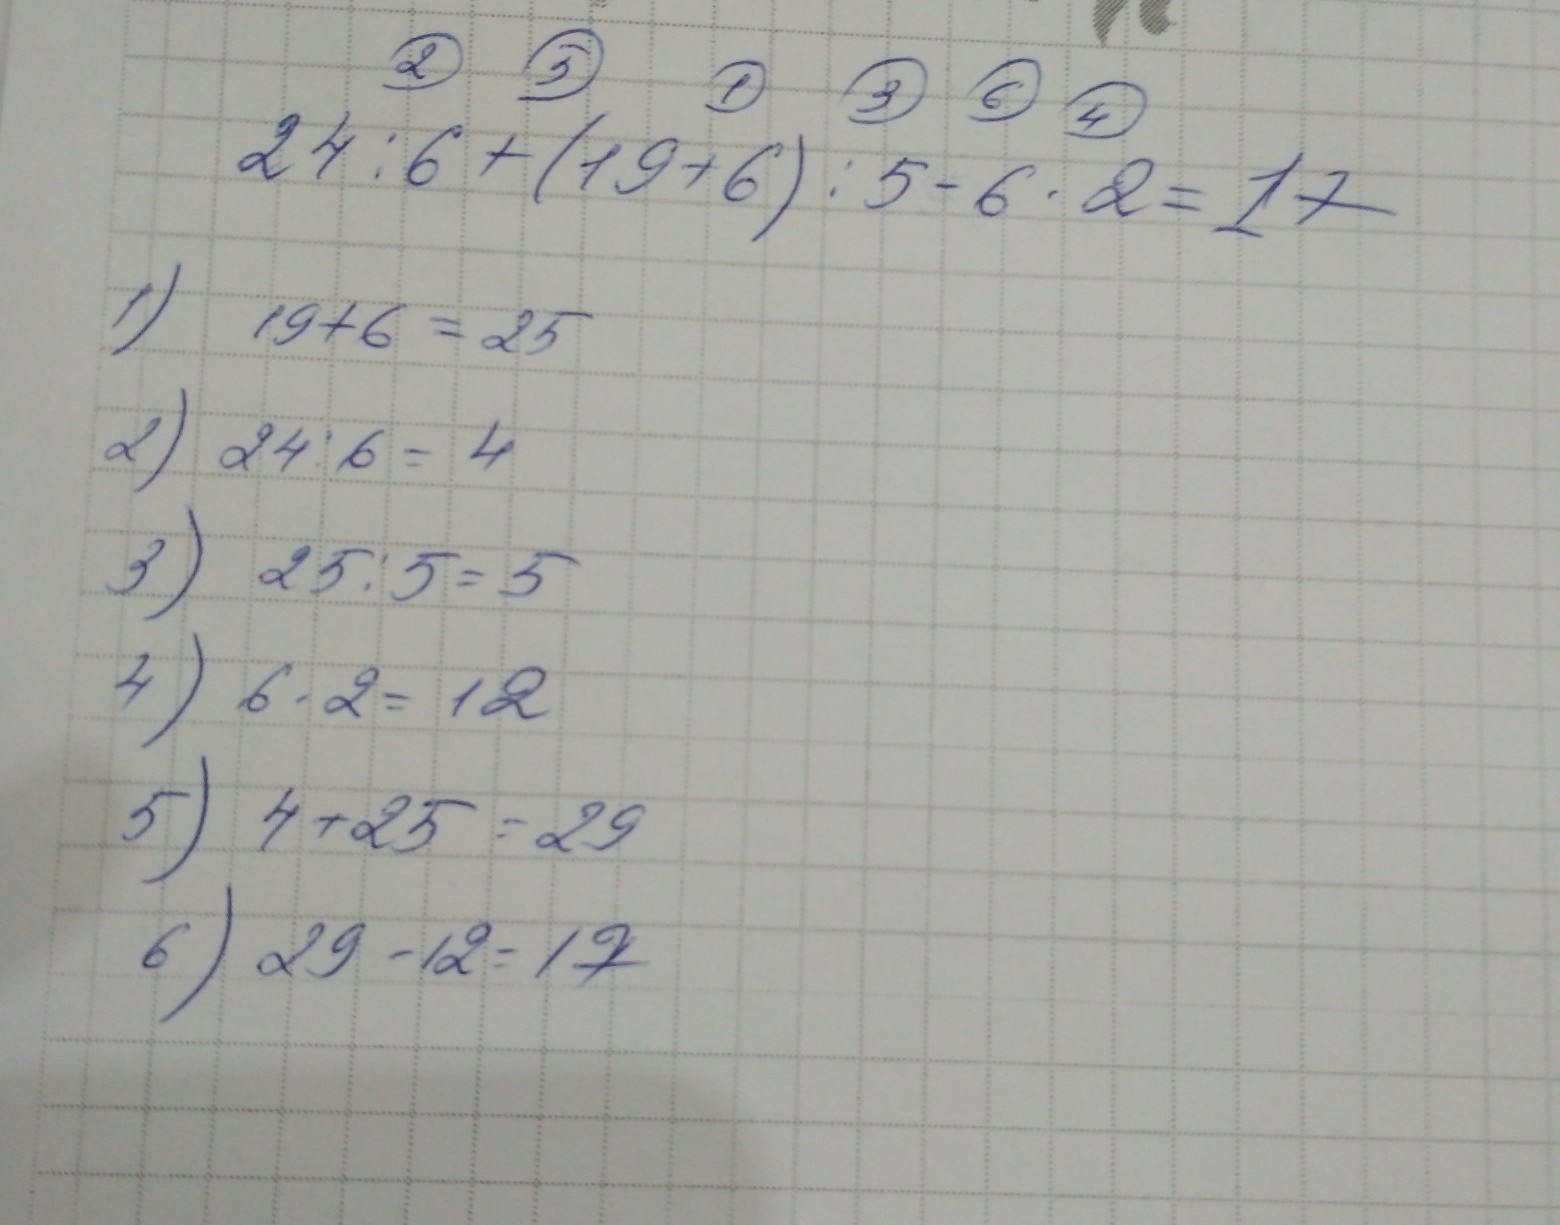 ② ⑤ ① ③ ⑥ ④
24 : 6 + (19+6) : 5 - 6 · 2 = 17
1) 19+6 = 25
2) 24 : 6 = 4
3) 25 : 5 = 5
4) 6 · 2 = 12
5) 4 + 25 = 29
6) 29 - 12 = 17